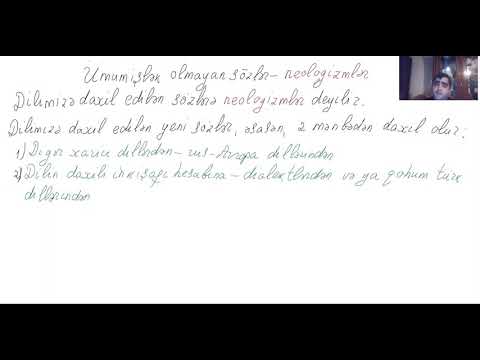 Ümumişlək olmayan sözlər – neologizmlər
Dilimizə daxil edilən sözlərə neologizmlər deyilir.
Dilimizə daxil edilən yeni sözlər, əsasən, 2 mənbədən daxil olur:
1) Digər xarici dillərdən – rus-Avropa dillərindən
2) Dilin daxili inkişafı hesabına – dialektlərdən və ya qohum türk
dillərindən